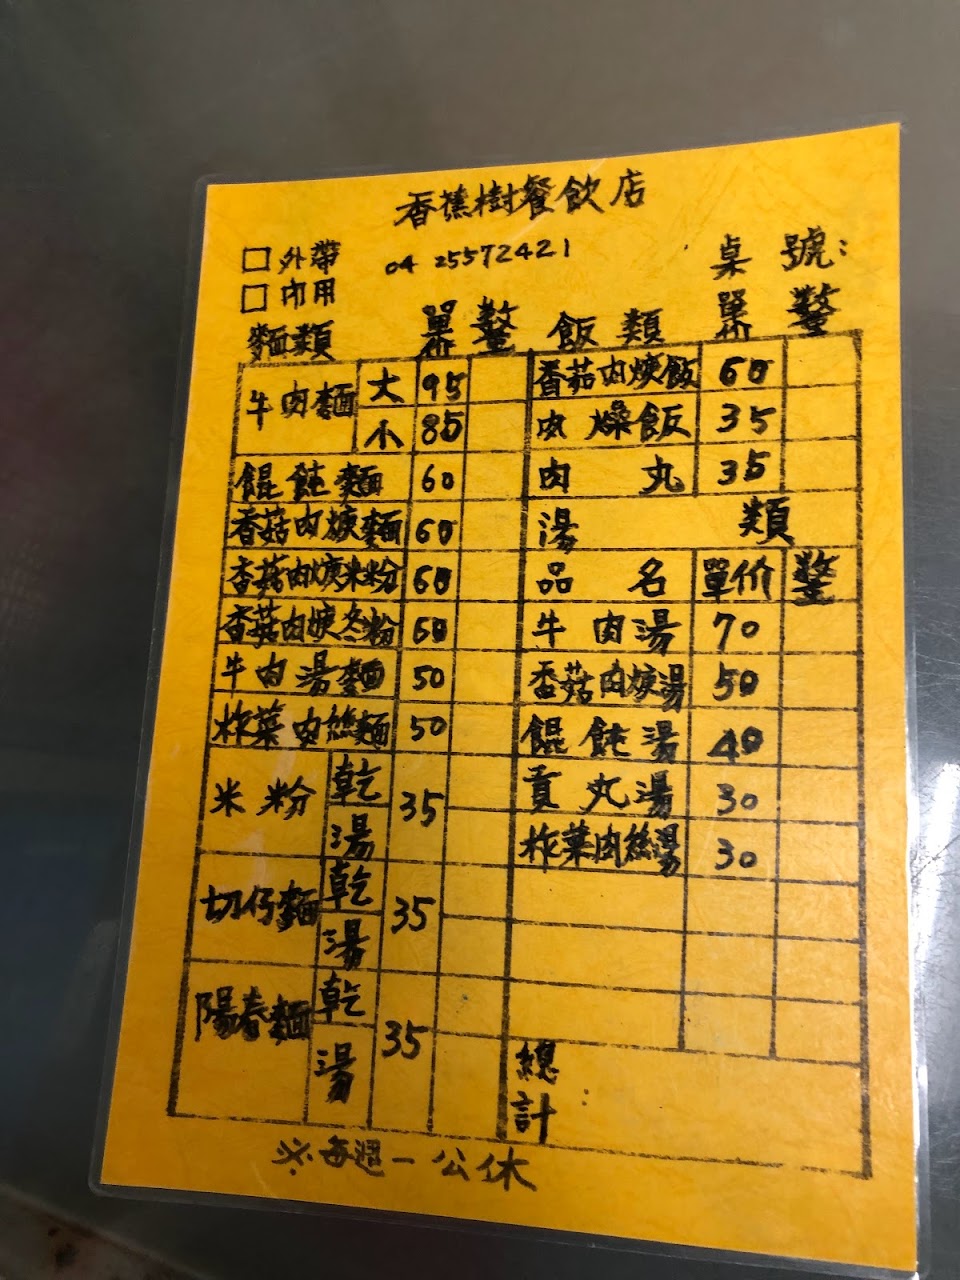 香蕉樹餐飲店
□ 外帶
04 25572421
桌 號:
□ 內用
麵類 單价 數量
牛肉麵 大 95
小 85
餛飩麵 60
香菇肉焿麵 60
香菇肉焿米粉 60
香菇肉焿冬粉 60
牛肉湯麵 50
榨菜肉絲麵 50
米粉 乾 湯 35
切仔麵 乾 湯 35
陽春麵 乾 湯 35
飯類 單价 數量
香菇肉焿飯 60
肉燥飯 35
肉丸 35
湯類
品名 單价 數量
牛肉湯 70
香菇肉焿湯 50
餛飩湯 40
貢丸湯 30
榨菜肉絲湯 30
總計:
※每週一公休